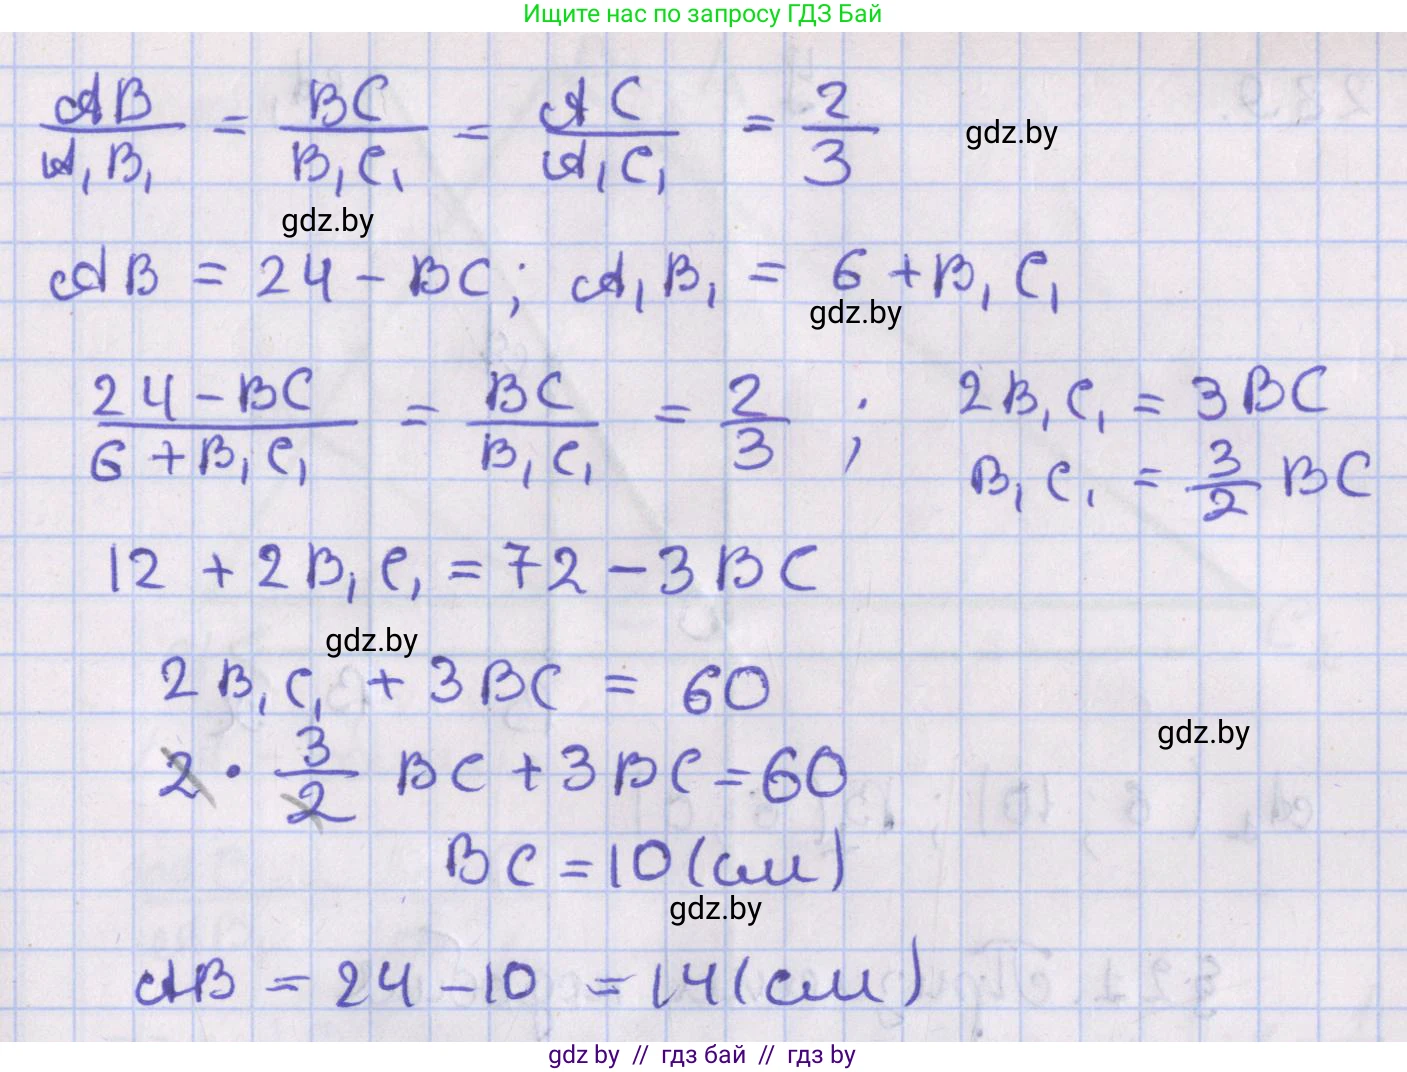 Ищите нас по запросу ГДЗ Бай
AB/A₁B₁ = BC/B₁C₁ = AC/A₁C₁ = 2/3
gdz.by
gdz.by
AB = 24 - BC; A₁B₁ = 6 + B₁C₁
gdz.by
(24 - BC)/(6 + B₁C₁) = BC/B₁C₁ = 2/3 ; 2B₁C₁ = 3BC
B₁C₁ = 3/2 BC
12 + 2B₁C₁ = 72 - 3BC
gdz.by
2B₁C₁ + 3BC = 60
gdz.by
2 · 3/2 BC + 3BC = 60
BC = 10 (см)
gdz.by
AB = 24 - 10 = 14 (см)
gdz by // гдз бай // гдз by